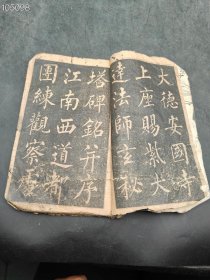 105098
大德安國寺
上座賜紫大
達法師玄秘
塔碑銘并序
江南西道都
團練觀察處